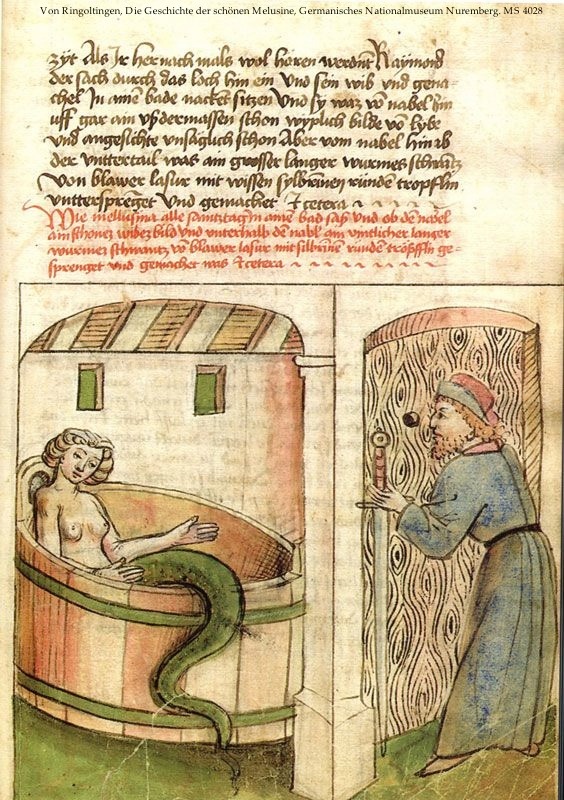 Von Ringoltingen, Die Geschichte der schönen Melusine, Germanisches Nationalmuseum Nuremberg. MS 4028
zÿt Als Ir her nach mals wol horen werdnt Raÿmond
der sach durch das loch hin ein Und sein wib vnd gena-
chel In ainē bade nacket sitzen Und sy waz võ nabel hin
uff gar ain vsdermassen schon wyplich bilde võ lybe
vnd angesichte vnsaglich schon Aber vom nabel hinab
der vnttertail was ain grosser langer wurmes schwantz
von blawer lasur mit wissen sylbrinen ründen tropflin
vntterspreget vnd gemachet Etcetera
Wie mellusina alle samtztagen in ainē bad saß vnd ob den nabel
ain schonez wibez bild vnd vnterhalb den nabl ain langer
wurmez schwantz võ blawer lasur mit silbrinen runden tröpfflin ge-
sprenget vnd gemachet was Etcetera